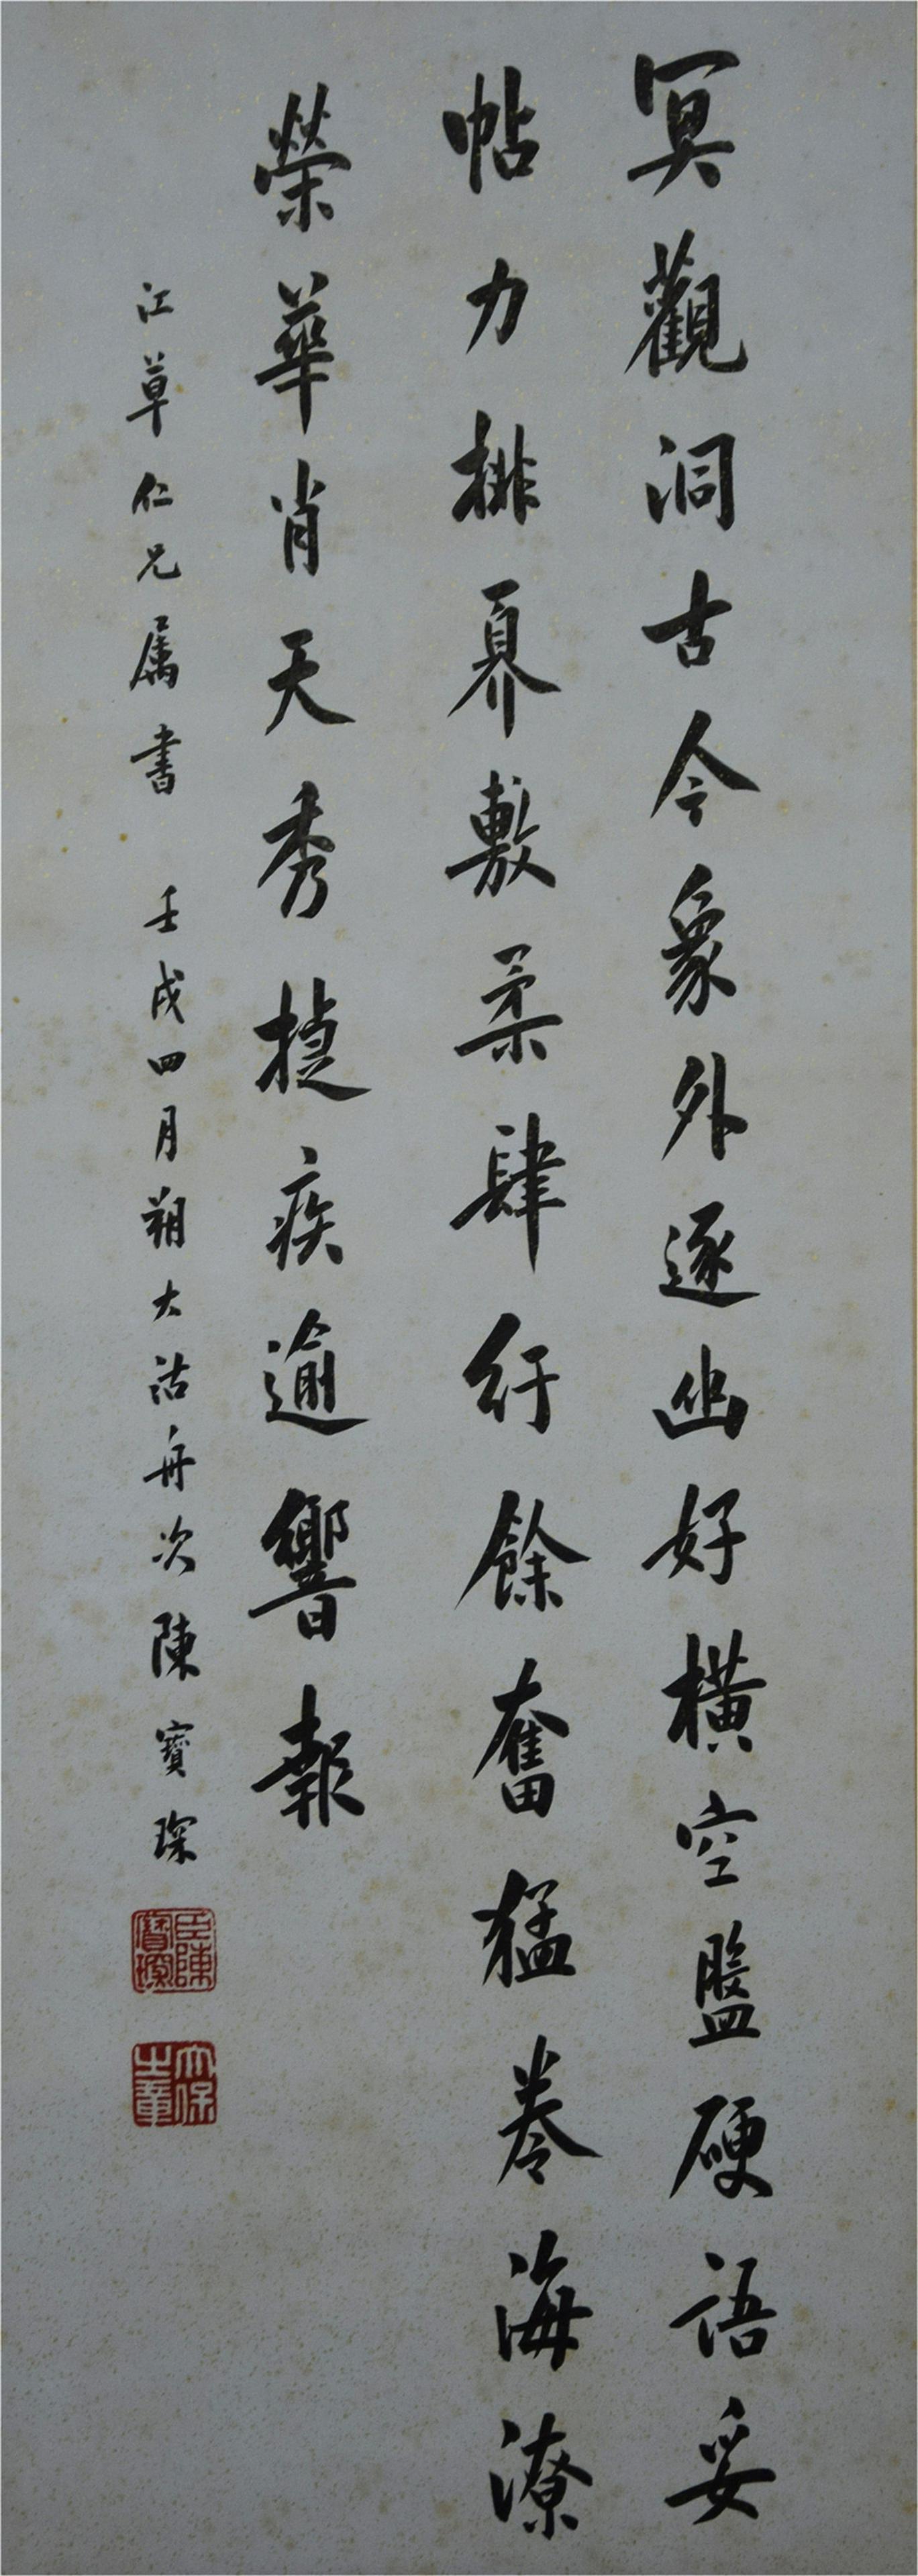 冥觀洞古今象外逐幽好橫空盤硬語妥
帖力排奡敷柔肆紆餘奮猛卷海潦
榮華肖天秀捷疾逾響報
江草仁兄属書 壬戌四月朔大沽舟次陳寶琛
臣陳寶琛
太保之章